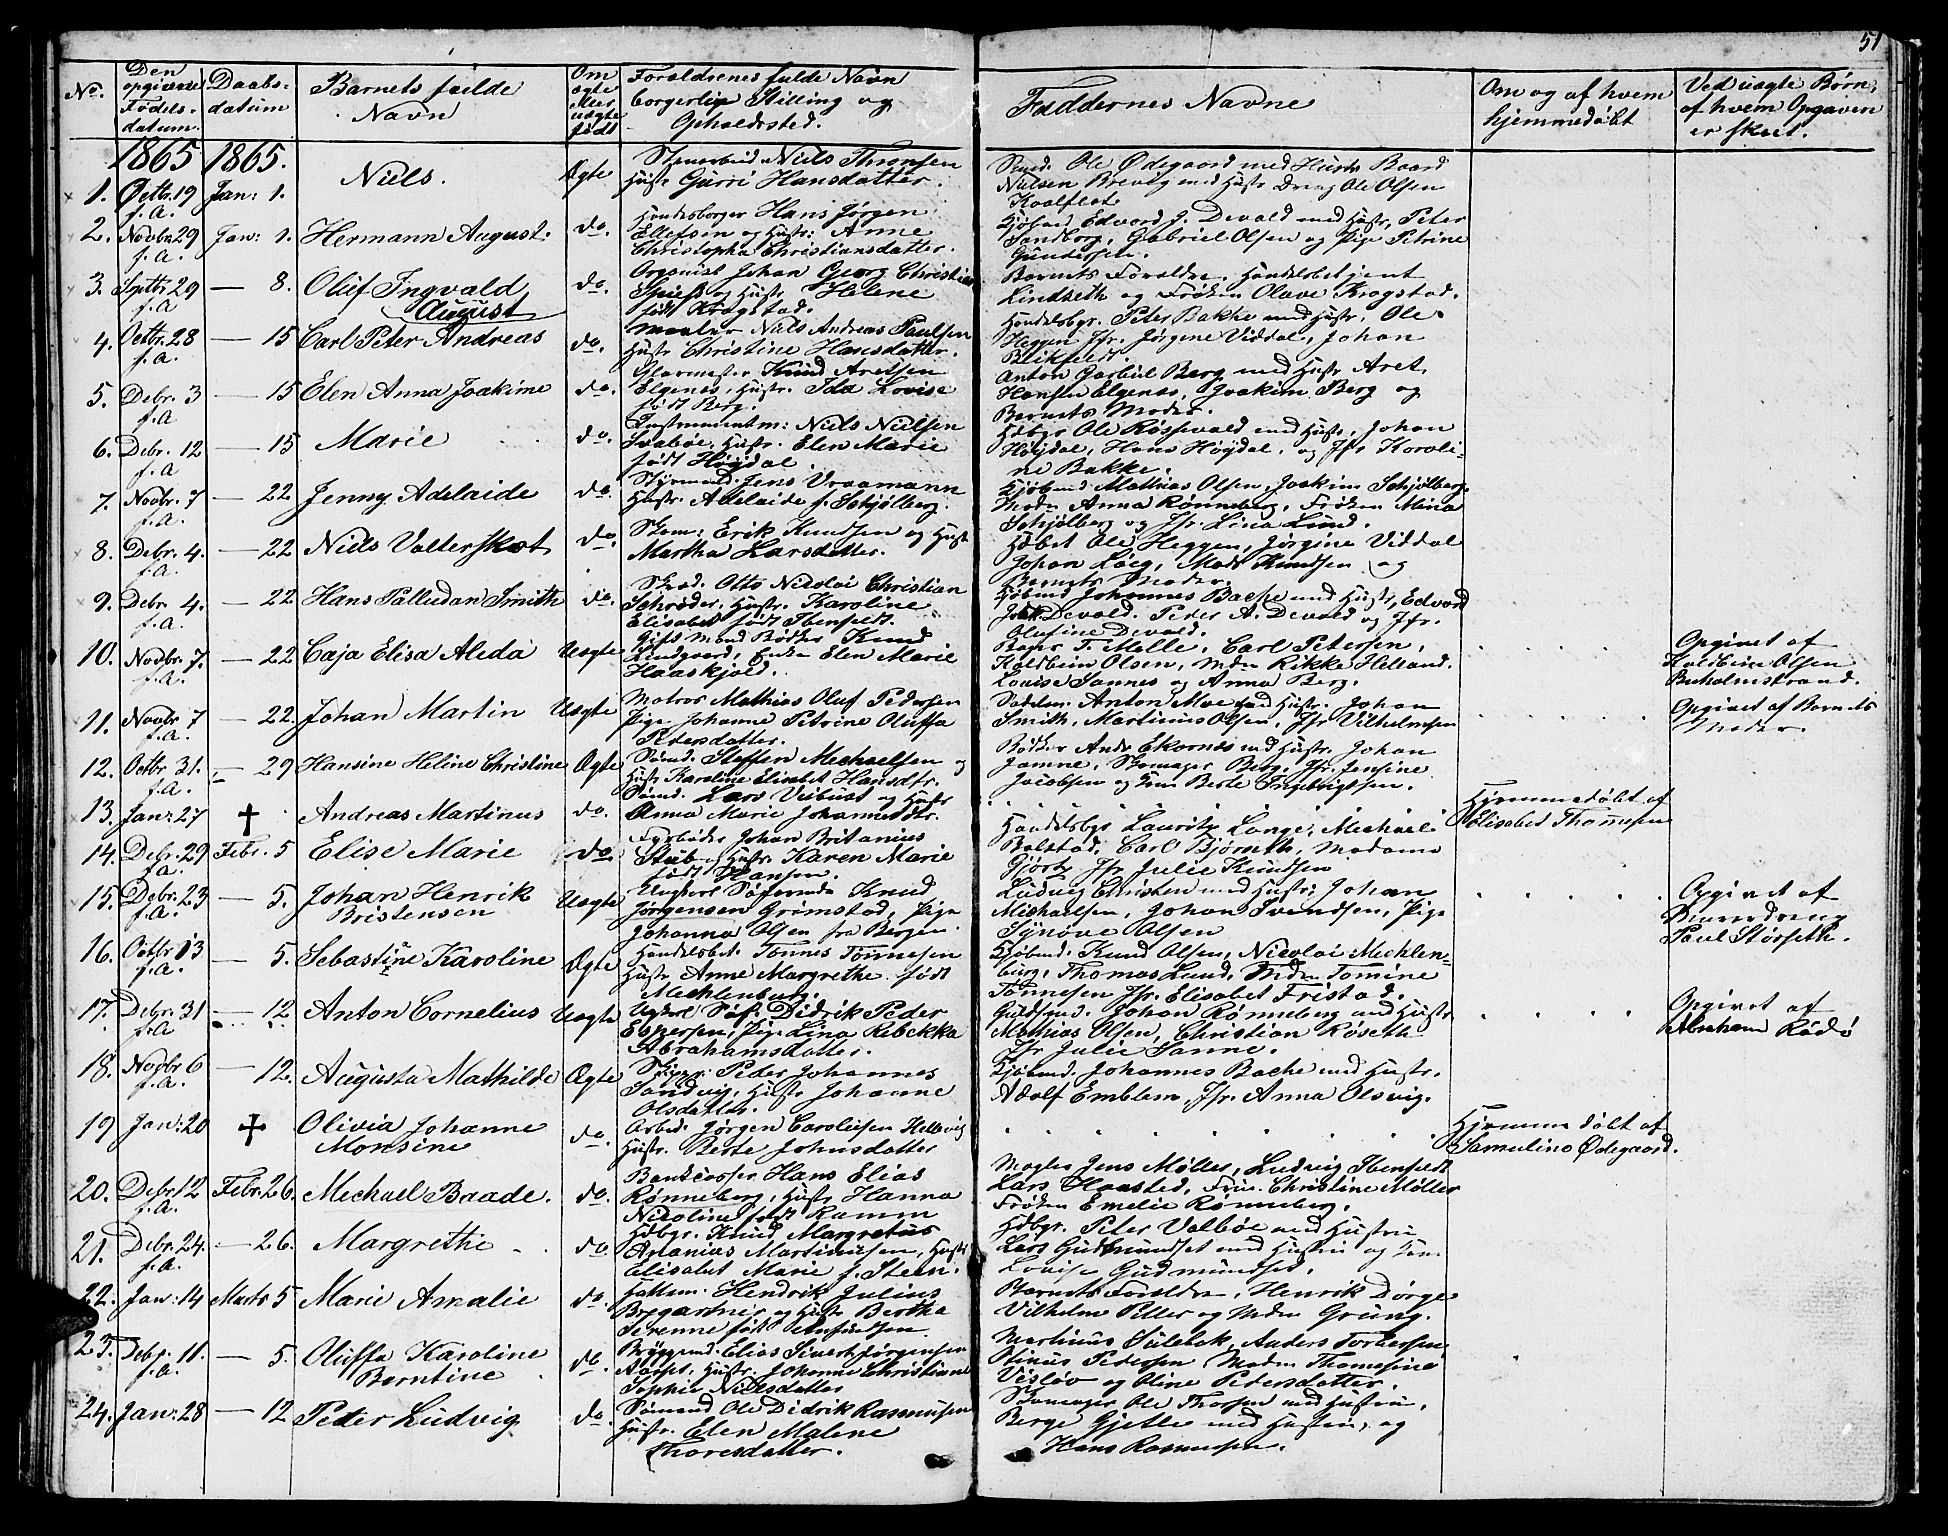 51
No.
Den opgivne Fødels-datum.
Daabs-datum
Barnets fulde Navn
Om ægte eller uægte født
Forældrenes fulde Navn borgerlige Stilling og Opholdssted.
Faddernes Navne
Om og af hvem hjemmedøbt
Ved uægte Børn, af hvem Opgaven er skeet.
1865 1865.
1. Octb: 19 f.a. Jan: 1. Niels. Ægte
Niels Thronsen
Hustr Gurri Hansdatter.
Ole Ødegaard med Hustr. Baard
Nielsen Brevig med Hustr Dreng Ole Olsen
Koalflot
2. Novbr 29 f.a. Jan: 1. Hermann August. do.
Handelsborger Hans Jørgen
Ellefsen og Hustr: Anne
Christopha Christiansdatter.
Edvard J. Devald med Hustr, Peter
Sandborg, Gabriel Olsen og Pige Petrine
Gundersen.
3. Septbr 29 f.a — 8. Oluf Ingvald August do.
Organist Johan Georg Christian
Spiess og Hustr Helene
født Krogstad.
Barnets Forældre. Handelsbetjent
Lindseth og Frøken Olave Krogstad.
4. Octbr. 28 f.a. — 15 Carl Peter Andreas do.
Maaler Niels Andreas Paulsen
Hustr Christine Hansdatter.
Handelsbgr. Peter Bakke med Hustr, Ole
Heggen Jfr. Jørgene Viddal, Johan
Blikfeldt.
5. Debr. 3 f.a — 15 Elen Anna Joakime do.
Glarmester Knud Aretsen
Elgenes, Hustr. Ida Lovise
født Berg.
Anton Garbul Berg med Hustr Aret
Hansen Elgenes, Joakim Berg og
Barnets Moder.
6. Debr. 12 f.a — 15 Marie do.
Instrumentm: Niels Nielsen
Svabøe, Hustr. Elen Marie
født Høydal
Hdbgr Ole Røssevald med Hustr, Johan
Høydal, Hans Høydal, og Jfr Karoli-
ne Bakke.
7. Novbr. 7 f.a. — 22 Jenny Adelaide do.
Styrmand Jens Vraamann
Hustr. Adelaide f. Schjølberg.
Kjøbmd. Mathias Olsen, Joakim Schjølberg.
Mdm Anna Rønneberg, Frøken Mina
Schjølberg og Jfr. Lina Lund.
8. Debr. 4. f.a. — 22 Niels Valterskat do.
Skom: Erik Knudsen og Hustr
Martha Larsdatter.
Hdbet Ole Heggen, Jørgine Viddal
Johan Løeg, Mads Knudsen og
Barnets Moder.
9. Debr 4. f.a. — 22 Hans Palludan Smith do.
Skræd. Otto Nicolai Christian
Schrøder, Hustr. Karoline
Elisabet født Ibenfeldt.
Kjøbmd Johannes Bache med Hustr, Edvard
Devald. Peder A. Devald og Jfr.
Olufine Devald.
10. Novbr. 7. f.a. — 22 Caja Elisa Aleda Uægte
Gift Mand Bødker Knud
Lindgaard, Enke Elen Marie
Haaskjold.
T. Melle, Carl Petersen,
Koldbein Olsen, Mdm Rikke Helland.
Louise Sannes og Anna Berg.
Opgivet af
Koldbein Olsen
Buholmstrand.
11. Novbr 7 f.a. — 22. Johan Martin Uægte
Matros Mathias Oluf Pedersen
Pige Johanne Petrine Oluffa
Pedersdatter.
Sadelm. Anton Moe med Hustr. Johan
Smith, Martinus Olsen, Jfr Vilhelmsen
Opgivet af Barnets
Moder.
12. Octbr 31. f.a. — 29 Hansine Heline Christine Ægte
Sømd. Steffen Mechaelsen og
Hustr Karoline Elisabet Hansdtr.
Bødker Andr Ekornes med Hustr. Johan
Jamne, Skomager Berg, Jfr. Jensine
Jacobsen og Fru Berte Ingebrigtsen.
13. Jan: 27 † Andreas Martinus do.
Sømd. Lars Vebust og Hustr
Anna Marie Johannesdtr.
Hjemmedøbt af
Elisabet Thomesen
14. Debr. 29 f.a. Febr. 5 Elise Marie do
Fyrbøder Johan Britanius
Stub og Hustr. Karen Marie
født Hansen.
Handelsbgr Lauritz Lange, Michael
Bolstad, Carl Bjørseth, Madame
Gjørtz Jfr Julie Knudsen
15. Debr. 23 f.a. — 5. Johan Henrik Bristensen Uægte
Ungkarl Søfarende Knud
Jørgensen Grimstad, Pige
Johanna Olsen fra Bergen.
Ludvig Christen med Hustr; Johan
Michaelsen, Johan Svendsen, Pige
Synøve Olsen
Opgivet af
Paul Størseth.
16. Octbr 13 f.a. — 5. Sebastine Karoline Ægte
Handelsbet. Tønnes Tønnesen
Hustr Anne Margrethe født
Mechlenburg.
Kjøbmd. Knud Olsen, Nicolai Mechlen-
burg, Thomas Lund, Mdm Tomine
Tønnesen Jfr. Elisabet Fristad.
17. Debr. 31 f.a — 12 Anton Cornelius Uægte
Ungkarl Søf. Didrik Peder
Espersen, Pige Lina Rebekka
Abrahamsdatter.
Guldsmd. Johan Rønneberg med Hustr
Mathias Olsen, Christian Røseth
Jfr Julie Sanne.
Opgivet af
Abraham Rødø
18. Novbr 6 f.a. — 12. Augusta Mathilde Ægte
Skippr. Peder Johannes
Sandvig, Hustr. Johanne
Olsdatter.
Kjøbmd. Johannes Bache med Hustr.
Adolf Emblem, Jfr. Anna Olsvig.
19 Jan: 20 † Olivia Johanne Monsine do.
Arbed. Jørgen Caroliusen Hellevig
Hustr. Berte Johnsdatter
Hjemmedøbt af
Samuline Ødegaard.
20. Debr 12 f.a. Febr. 26. Mechael Baade. do.
Bankcasser. Hans Elias
Rønneberg, Hustr. Hanna
Nicoline født Ramm
Mægler Jens Møller, Ludvig Ibenfeldt
Lars Haasted, Fru Christine Møller
Frøken Emelie Rønneberg.
21. Debr. 24. f.a. — 26. Margrethe do.
Hdbgr. Knud Margretus
Ananias Martinusen, Hustr
Elisabet Marie f. Steen.
Hdbgr. Peter Valbøe med Hustru
Lars Gudmundset med Hustru og
Lovise Gudmundset.
22. Jan: 14 Marts 5 Marie Amalie do.
Hattem. Hendrik Julius
Bergartner og Hustr Bertha
Serenne født Amundsen.
Barnets Forældre, Henrik Dørge
Vilhelm Peller og Mdm Grung.
23. Debr. 11. f.a. — 5. Oluffa Karoline Berntine do.
Bryggemd. Elias Sivert Jørgensen
Hustr. Johanne Christiane
Sophie Nielsdatter
Martinus Sulebak, Anders Torbersen
Stinus Pedersen Madm Thomesine
Visløv og Oline Pedersdatter.
24. Jan: 28 — 12 Peder Ludvig do.
Sømand Ole Didrik Rasmusen
Hustr. Elen Malene
Thoresdatter.
Skomager Ole Thorsen med Hustru,
Berge Gjelle med Hustru, og
Hans Rasmusen.